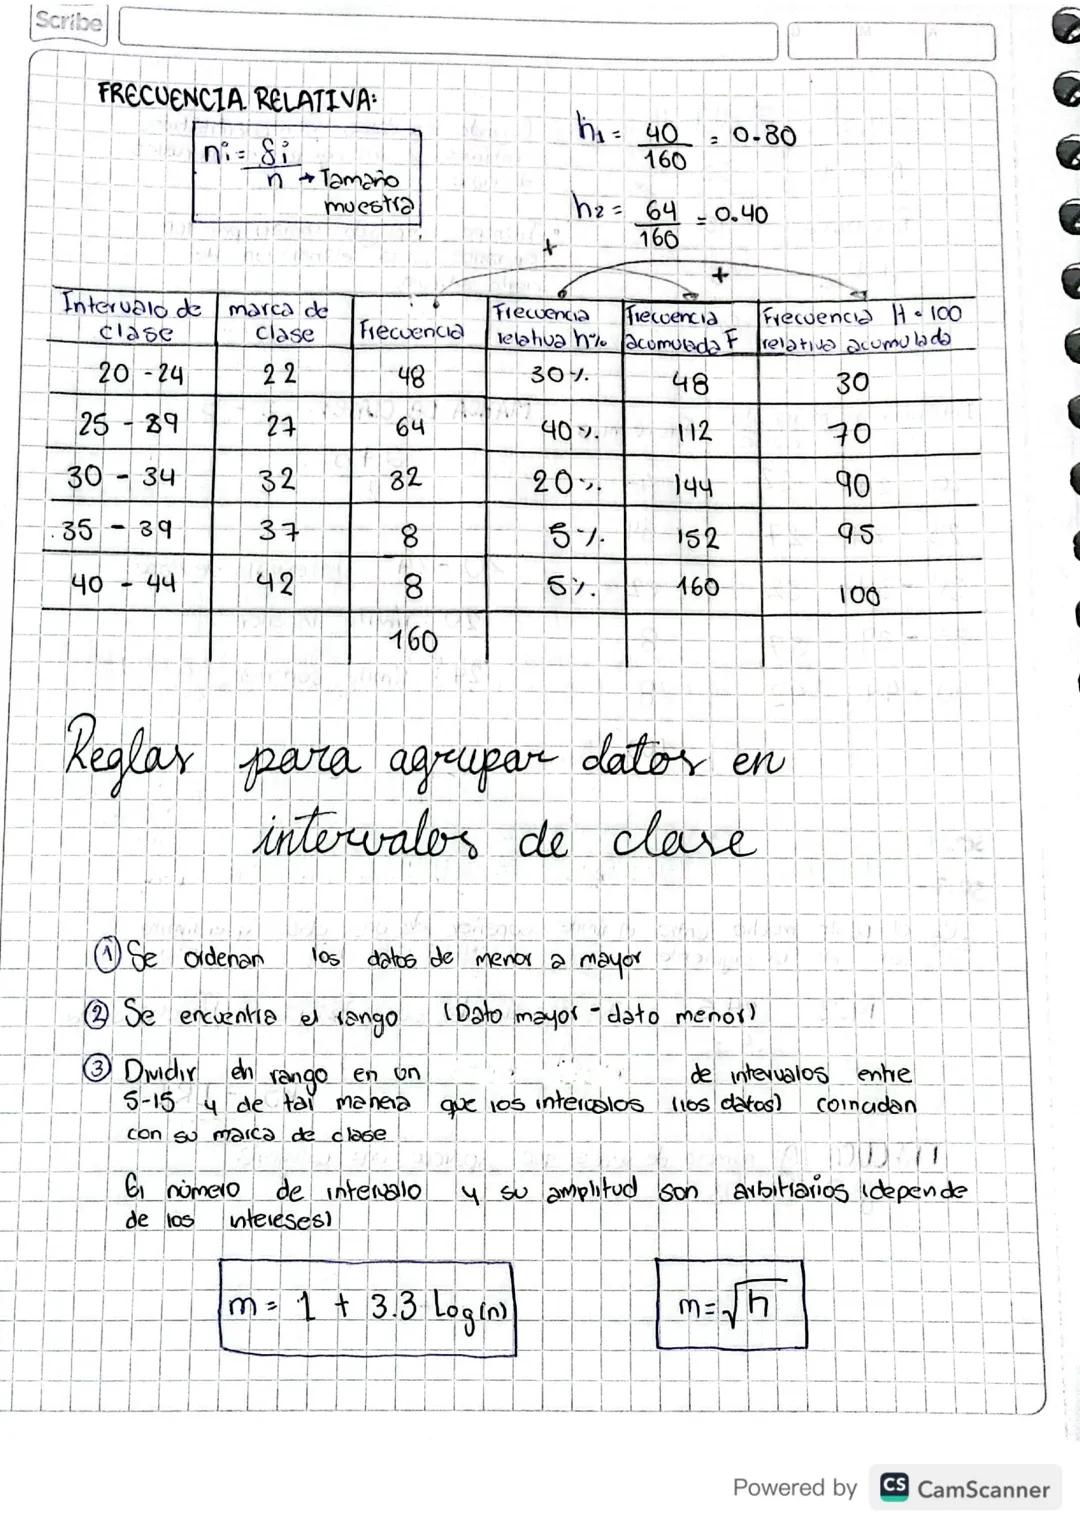 Scribe
FRECUENCIA RELATIVA:
ni = fi
n → Tamaño
muestra
h1 = 40 = 0.30
160
h2 = 64 = 0.40
160
+
+
Intervalo de clase | marca de clase | Frecuencia | Frecuencia relativa h% | Frecuencia acumulada F | Frecuencia H = 100 relativa acumulada
20 - 24 | 22 | 48 | 30% | 48 | 30
25 - 29 | 27 | 64 | 40%. | 112 | 70
30 - 34 | 32 | 32 | 20%. | 144 | 90
35 - 39 | 37 | 8 | 5%. | 152 | 95
40 - 44 | 42 | 8 | 5%. | 160 | 100
160
Reglas para agrupar datos en
intervalos de clase
① Se ordenan los datos de menor a mayor
② Se encuentra el rango (Dato mayor - dato menor)
③ Dividir en rango en un de intervalos entre
5-15 y de tal manera que los intervalos (los datos) coincidan
con su marca de clase
El número de intervalo y su amplitud son arbitrarios (depende
de los intereses)
m = 1 + 3.3 Log(n)
m = √n
Powered by CS CamScanner